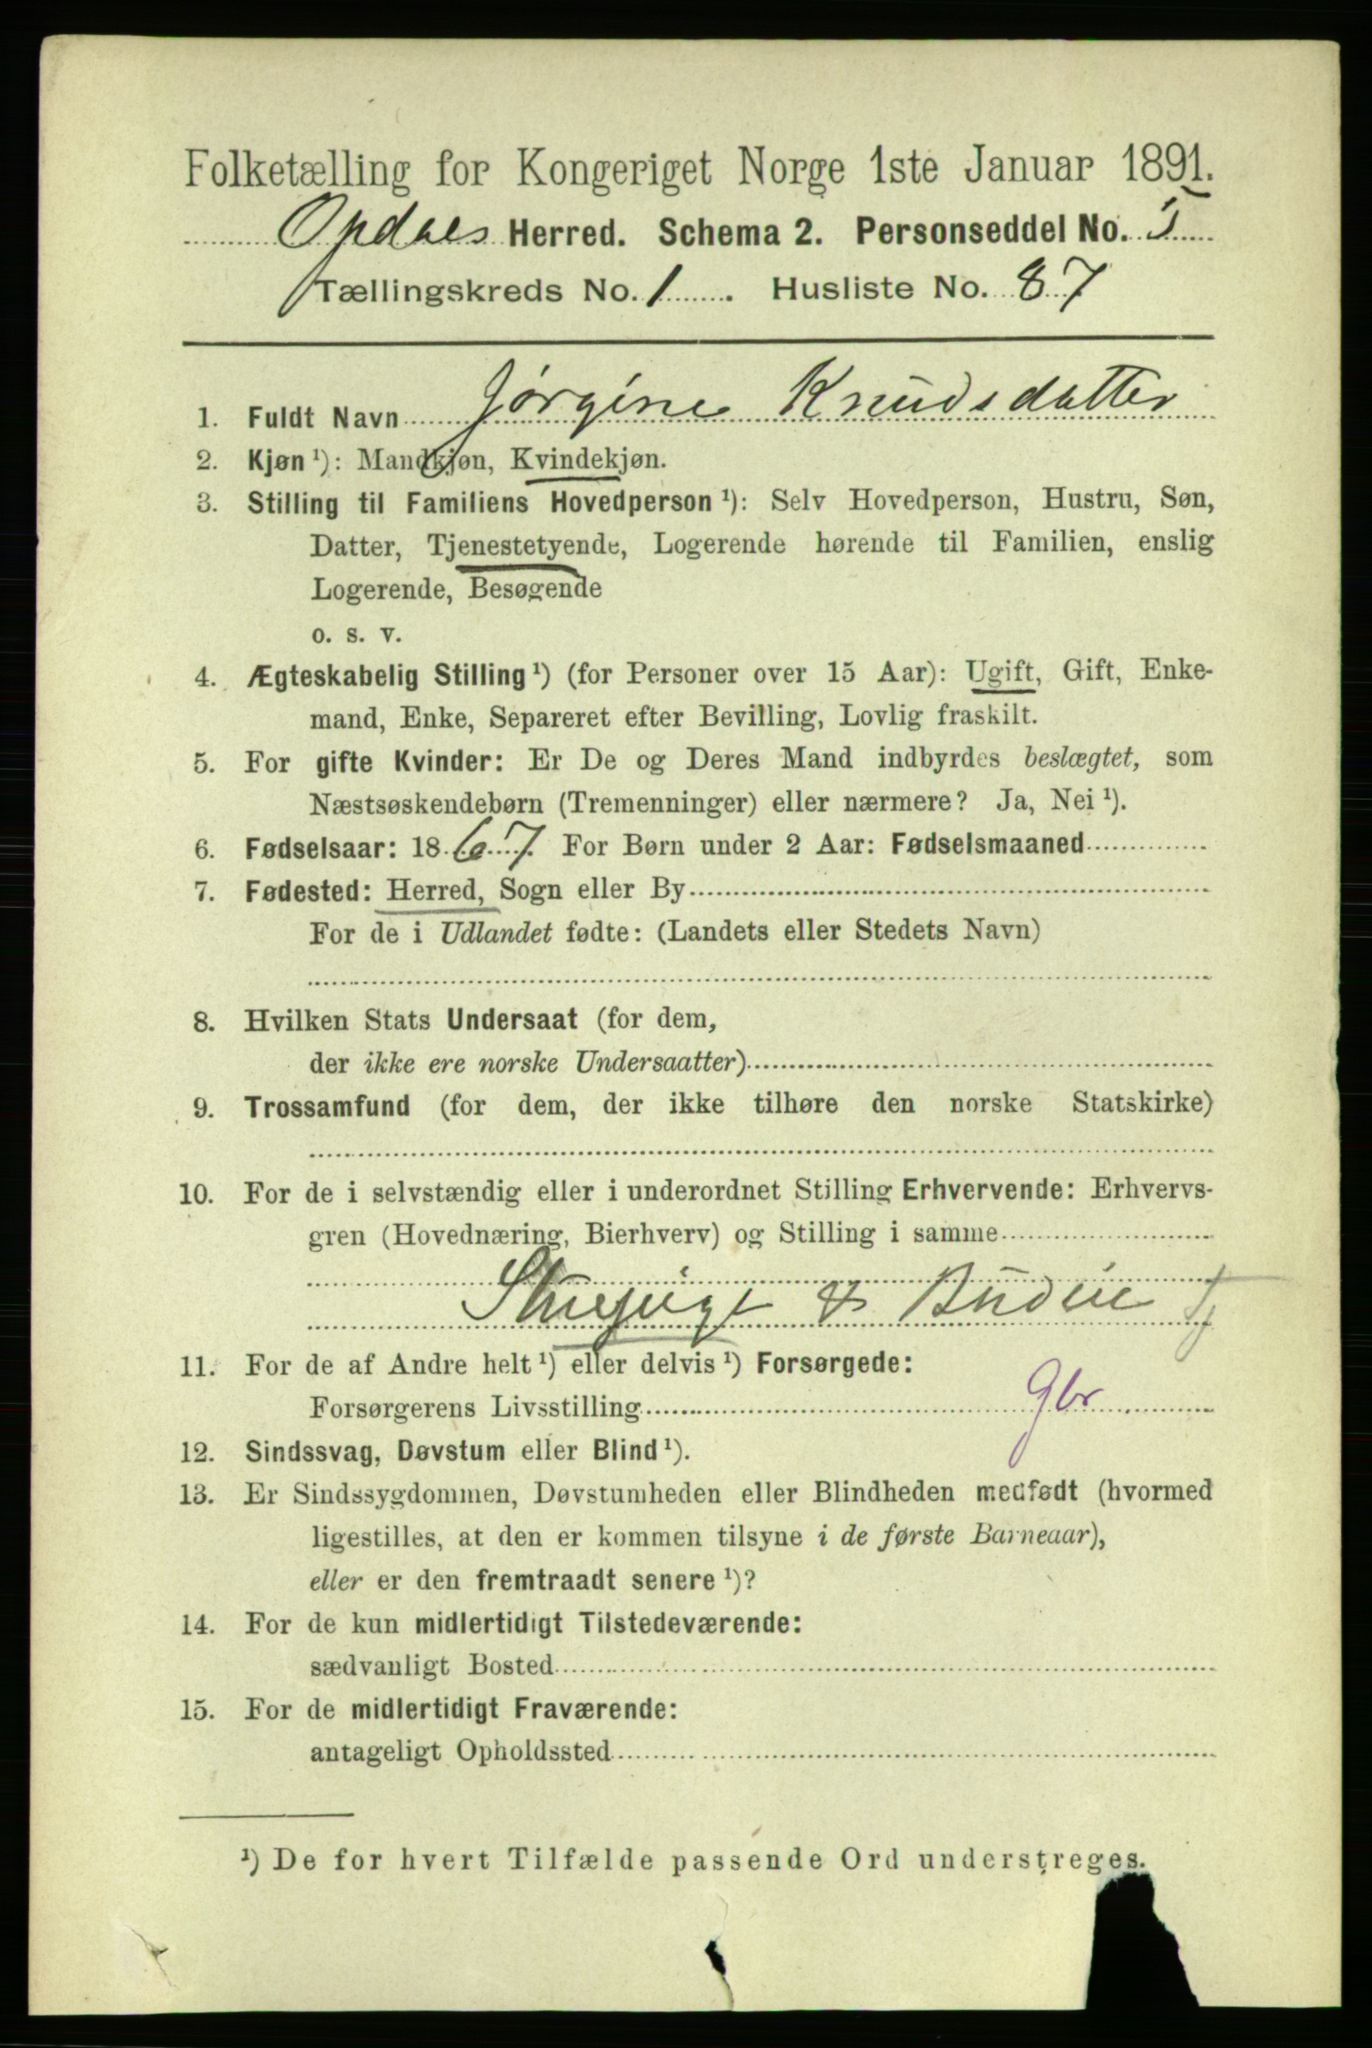 Folketælling for Kongeriget Norge 1ste Januar 1891.
Opdals Herred. Schema 2. Personseddel No. 5
Tællingskreds No. 1. Husliste No. 87
1. Fuldt Navn Jørgine Knudsdatter
2. Kjøn ¹): Mandkjøn, Kvindekjøn.
3. Stilling til Familiens Hovedperson ¹): Selv Hovedperson, Hustru, Søn,
Datter, Tjenestetyende, Logerende hørende til Familien, enslig
Logerende, Besøgende
o. s. v.
4. Ægteskabelig Stilling ¹) (for Personer over 15 Aar): Ugift, Gift, Enke-
mand, Enke, Separeret efter Bevilling, Lovlig fraskilt.
5. For gifte Kvinder: Er De og Deres Mand indbyrdes beslægtet, som
Næstsøskendebørn (Tremenninger) eller nærmere? Ja, Nei ¹).
6. Fødselsaar: 1867. For Børn under 2 Aar: Fødselsmaaned
7. Fødested: Herred, Sogn eller By
For de i Udlandet fødte: (Landets eller Stedets Navn)
8. Hvilken Stats Undersaat (for dem,
der ikke ere norske Undersaatter)
9. Trossamfund (for dem, der ikke tilhøre den norske Statskirke)
10. For de i selvstændig eller i underordnet Stilling Erhvervende: Erhvervs-
gren (Hovednæring, Bierhverv) og Stilling i samme
Stuepige & Budeie Tj
11. For de af Andre helt ¹) eller delvis ¹) Forsørgede:
Forsørgerens Livsstilling Gbr
12. Sindssvag, Døvstum eller Blind ¹).
13. Er Sindssygdommen, Døvstumheden eller Blindheden medfødt (hvormed
ligestilles, at den er kommen tilsyne i de første Barneaar),
eller er den fremtraadt senere ¹)?
14. For de kun midlertidigt Tilstedeværende:
sædvanligt Bosted
15. For de midlertidigt Fraværende:
antageligt Opholdssted
¹) De for hvert Tilfælde passende Ord understreges.